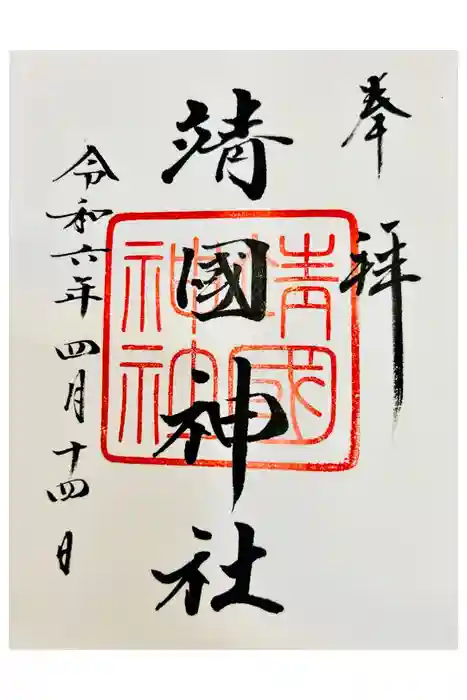 奉拝
靖國神社
靖國
神社
令和六年四月十四日